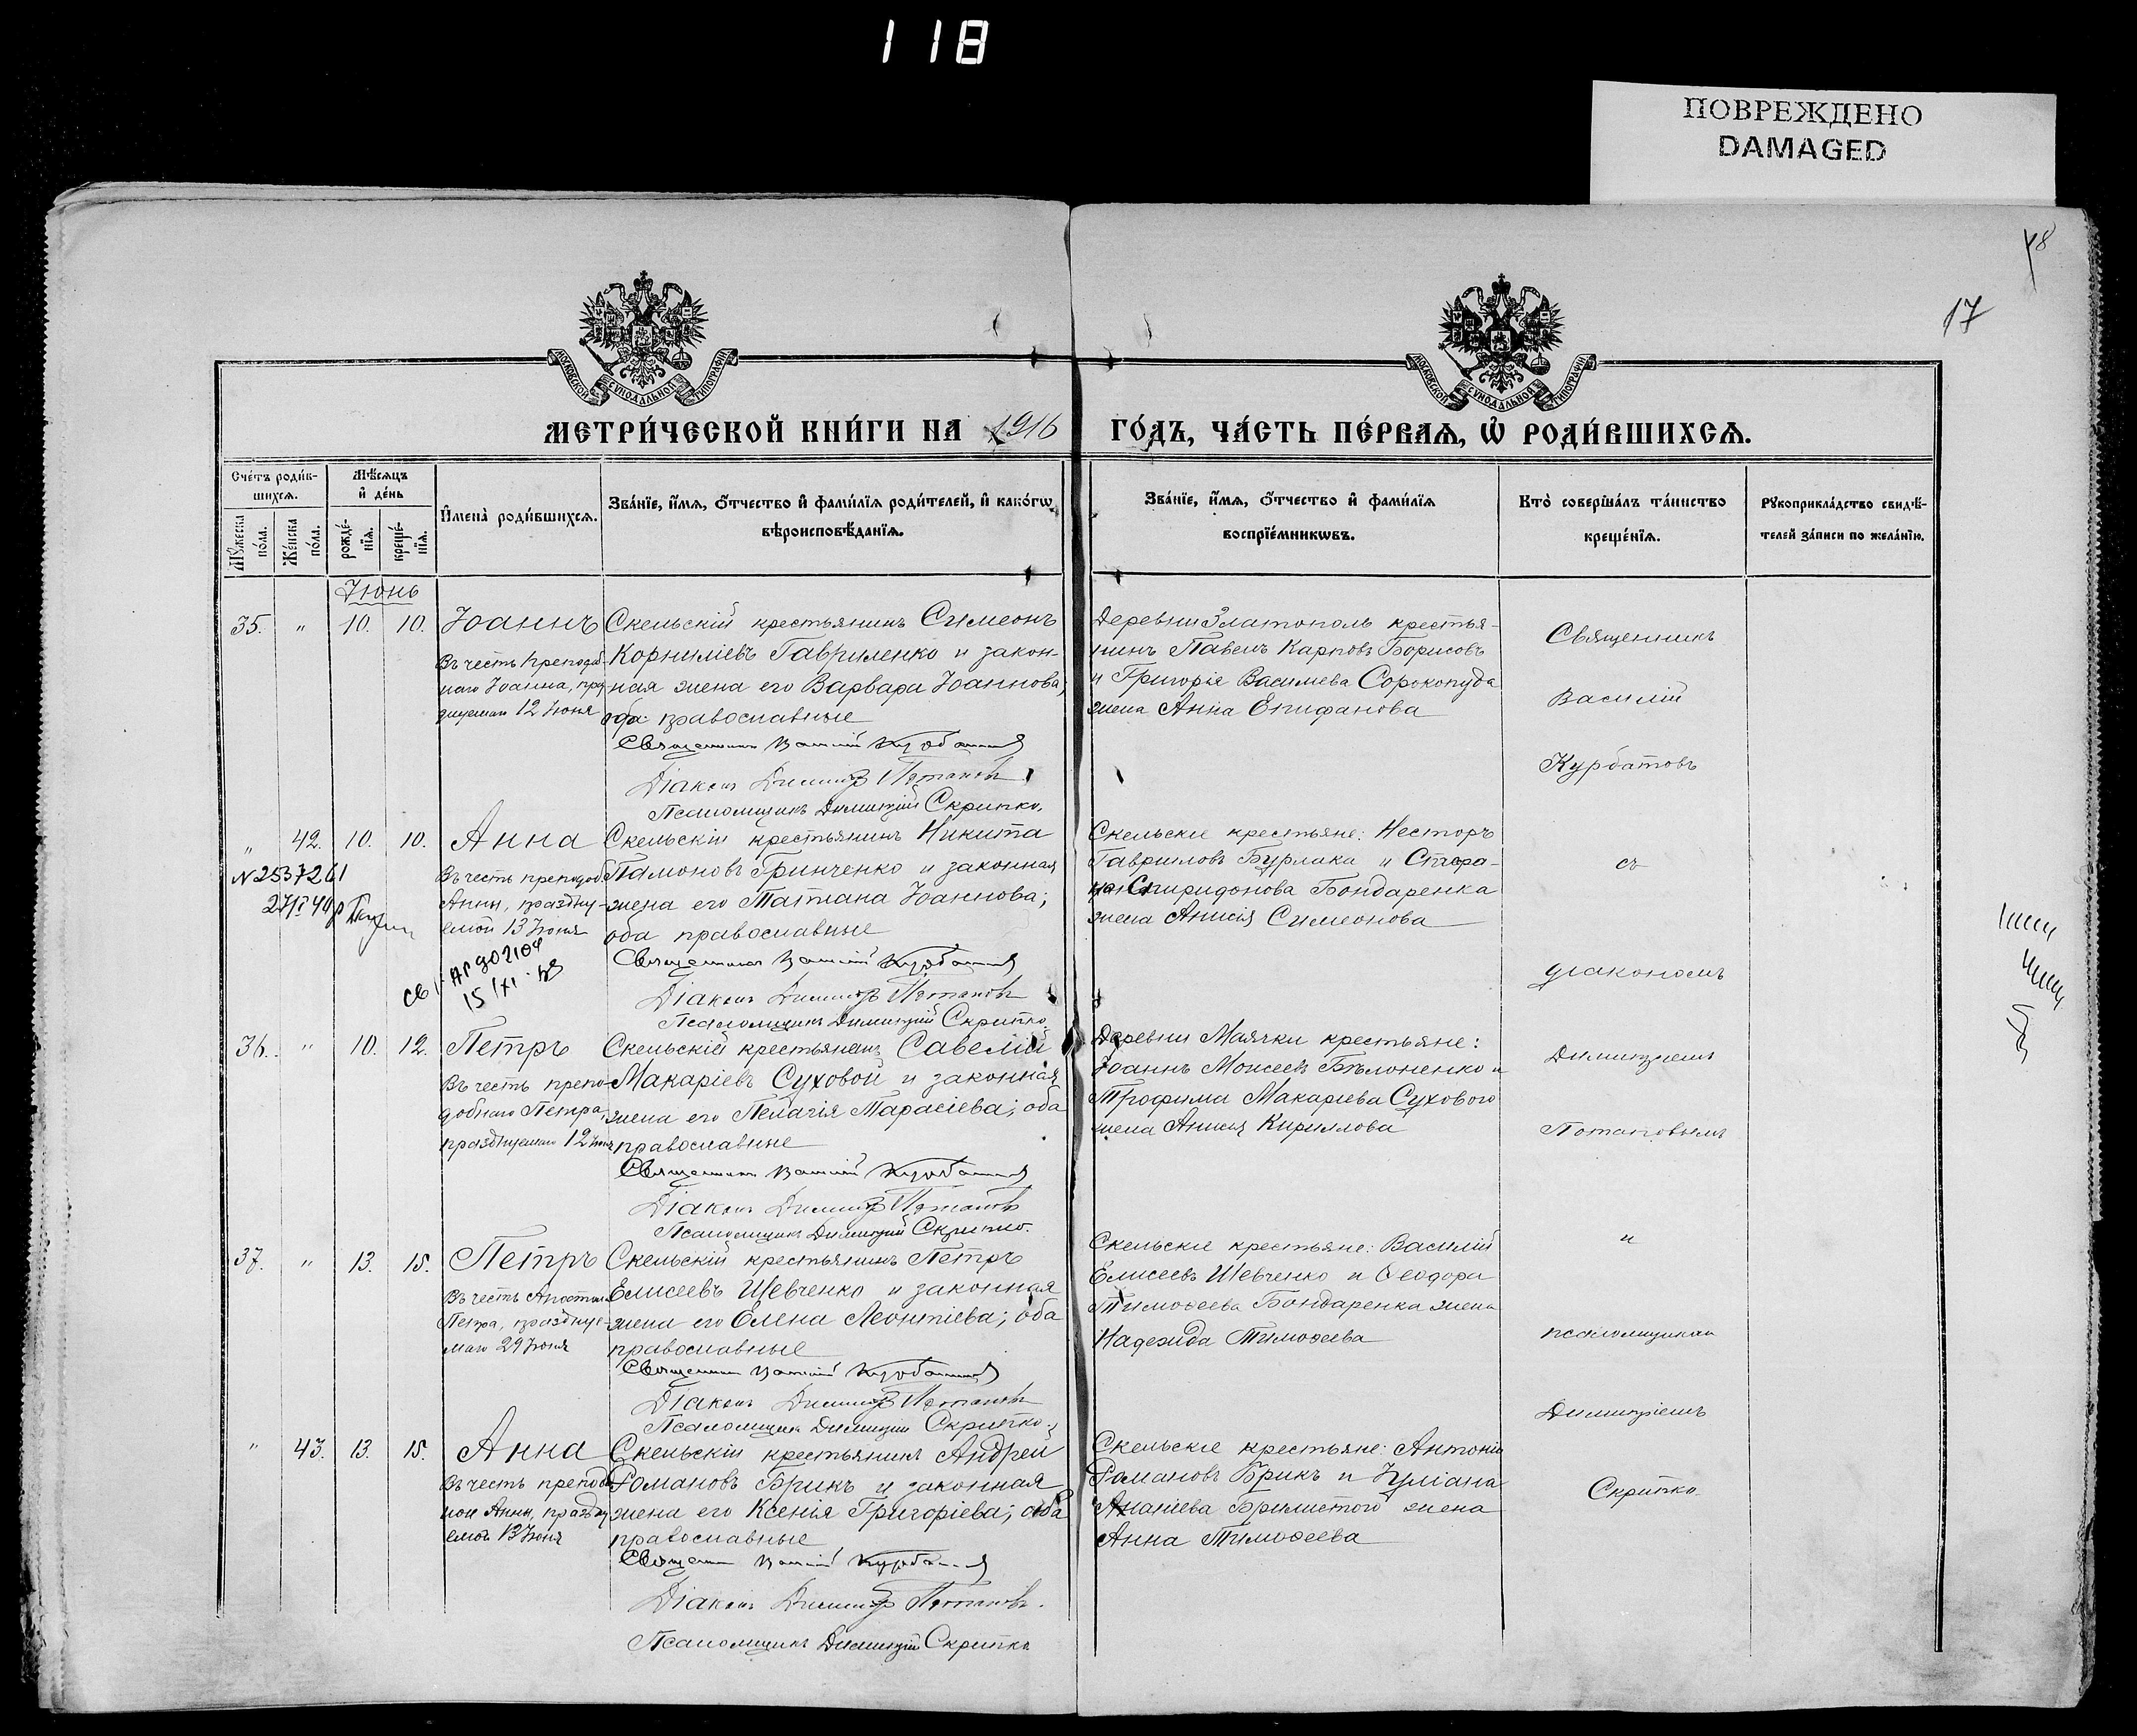 118
ПОВРЕЖДЕНО
DAMAGED
18
17
МОСКОВСКОЙ СУНОДАЛЬНОЙ ТИПОГРАФІИ
МОСКОВСКОЙ СУНОДАЛЬНОЙ ТИПОГРАФІИ
МЕТРИ́ЧЕСКОЙ КНИ́ГИ НА 1916 ГО́ДЪ, ЧА́СТЬ ПЕ́РВАѦ, Ѡ РОДИ́ВШИХСѦ.
Сче́тъ роди́в-
шихсѧ.
Мѣ́сѧцъ
и҆ де́нь
Мꙋ́жеска по́ла.
Же́нска по́ла.
рожде́-
нїѧ.
креще́-
нїѧ.
И҆мена̀ роди́вшихсѧ.
Зва́нїе, и҆́мѧ, ѻ҆́тчество и҆ фами́лїѧ роди́телей, и҆ како́гѡ
вѣроисповѣ́данїѧ.
Зва́нїе, и҆́мѧ, ѻ҆́тчество и҆ фами́лїѧ
воспрїе́мникѡвъ.
Кто̀ соверша́лъ та́инство
креще́нїѧ.
Рꙋкоприкла́дство свидѣ́-
телей за́писи по жела́нїю.
Іюнь
35. " 10. 10. Іоаннъ
Въ честь препод
наго Іоанна, праз
днуемаго 12 Іюня
Скельскій крестьянинъ Симеонъ
Корниліевъ Гавриленко и закон-
ная жена его Варвара Іоаннова;
оба православные
Священникъ Василій Курбатовъ
Діаконъ Димитрій Потаповъ
Псаломщикъ Димитрій Скрипко.
Деревни Златополь крестья-
нинъ Павелъ Карповъ Борисовъ
и Григорія Васильева Сорокопуда
жена Анна Епифанова
Священникъ
Василій
Курбатовъ
" 42. 10. 10. Анна
Въ честь преподоб
Анны, праздну-
емой 13 Іюня
N 2537261
15/XI
Скельскій крестьянинъ Никита
Памоновъ Гринченко и законная
жена его Татіана Іоаннова;
оба православные
Священникъ Василій Курбатовъ
Діаконъ Димитрій Потаповъ
Псаломщикъ Димитрій Скрипко.
Скельскіе крестьяне: Несторъ
Гавриловъ Бурлака и Стефа-
на Спиридонова Бондаренка
жена Анисія Симеонова
съ
діакономъ
36. " 10. 12. Петръ
Въ честь препо-
добнаго Петра,
празднуемаго 12 Іюня
Скельскій крестьянинъ Савелій
Макаріевъ Суховой и законная
жена его Пелагія Тарасіева; оба
православные
Священникъ Василій Курбатовъ
Діаконъ Димитрій Потаповъ
Псаломщикъ Димитрій Скрипко.
Деревни Маячки крестьяне:
Іоаннъ Моисеевъ Бѣлоненко и
Трофима Макаріева Сухового
жена Анисія Кириллова
Димитріемъ
Потаповымъ
37. " 13. 15. Петръ
Въ честь Апостола
Петра, празднуе-
маго 29 Іюня
Скельскій крестьянинъ Петръ
Елисеевъ Шевченко и законная
жена его Елена Леонтіева; оба
православные
Священникъ Василій Курбатовъ
Діаконъ Димитрій Потаповъ
Псаломщикъ Димитрій Скрипко.
Скельскіе крестьяне: Василій
Елисеевъ Шевченко и Ѳеодора
Тимоѳеева Бондаренка жена
Надежда Тимоѳеева
и
псаломщикомъ
Димитріемъ
" 43. 13. 15. Анна
Въ честь преподоб
ной Анны, праздну
емой 13 Іюня
Скельскій крестьянинъ Андрей
Романовъ Брикъ и законная
жена его Ксенія Григоріева; оба
православные
Священникъ Василій Курбатовъ
Діаконъ Димитрій Потаповъ.
Псаломщикъ Димитрій Скрипко
Скельскіе крестьяне: Антоній
Романовъ Брикъ и Іуліана
Ананіева Брилистого жена
Анна Тимоѳеева
Скрипко